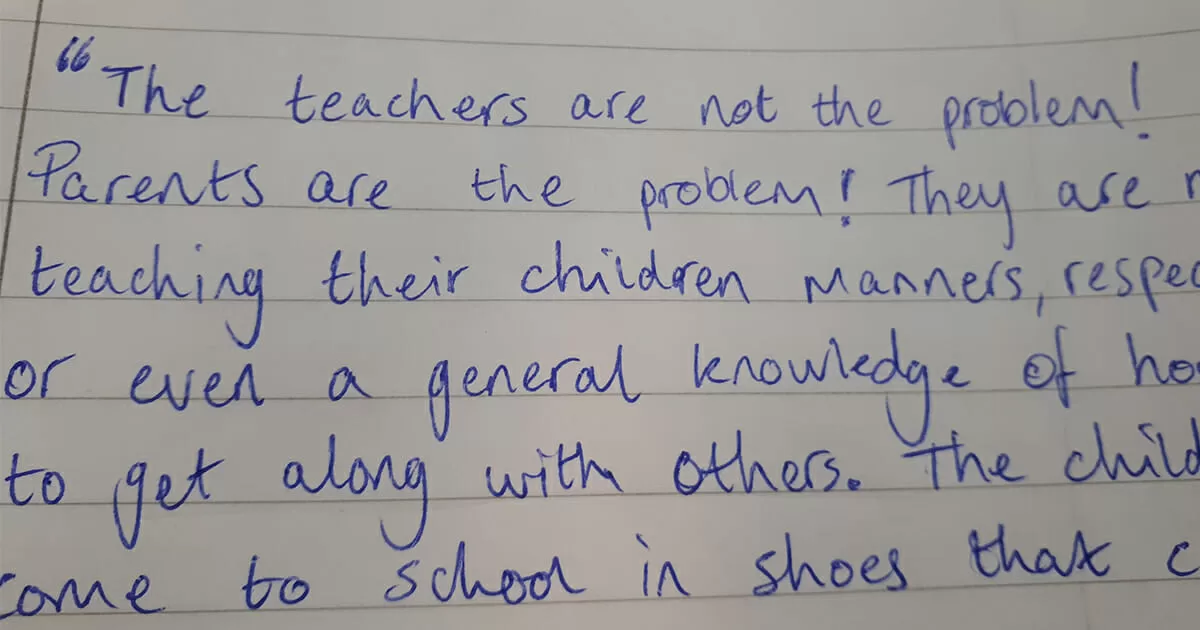 "The teachers are not the problem!
Parents are the problem! They are
teaching their children manners,
or even a general knowledge of
to get along with others. The
come to school in shoes that